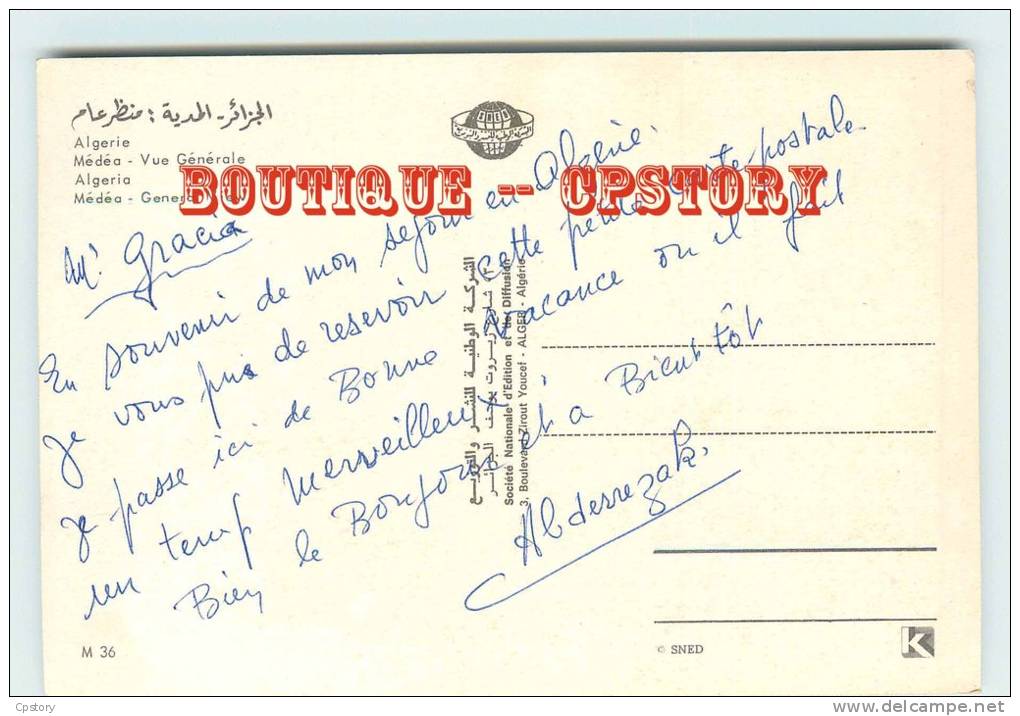 الجزائر - المدية : منظر عام
Algerie
Médéa - Vue Générale
Algeria
Médéa - General View
BOUTIQUE -- CPSTORY
Mr. Gracia
En souvenir de mon sejour en Algérie.
je vous prie de resevoir cette petite carte postale
je passe ici de Bonne vacance ou il fait
un temp merveilleux
Bien le Bonjour et a Bientôt
Abderrezak.
الشركة الوطنية للنشر والتوزيع
٣ شارع زيروت يوسف الجزائر
Société Nationale d'Edition et de Diffusion
3, Boulevard Zirout Youcef - ALGER - Algérie
SNED
M 36
© SNED
K
Cpstory
delcampe.net